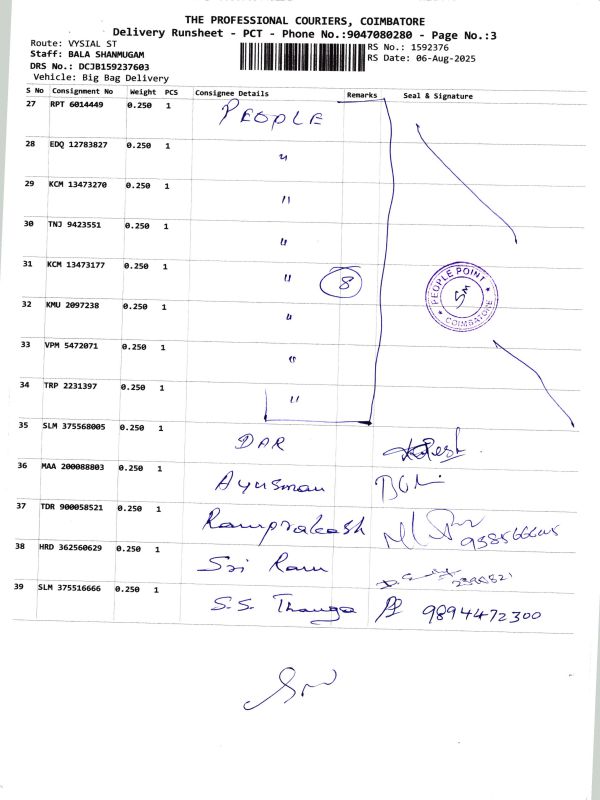 THE PROFESSIONAL COURIERS, COIMBATORE
Delivery Runsheet - PCT - Phone No.:9047080280 - Page No.:3
Route: VYSIAL ST
RS No.: 1592376
Staff: BALA SHANMUGAM
RS Date: 06-Aug-2025
DRS No.: DCJB159237603
Vehicle: Big Bag Delivery
S No Consignment No Weight PCS Consignee Details Remarks Seal & Signature
27 RPT 6014449 0.250 1 PEOPLE
28 EDQ 12783827 0.250 1 "
29 KCM 13473270 0.250 1 "
30 TNJ 9423551 0.250 1 "
31 KCM 13473177 0.250 1 " 8
PEOPLE POINT
SM
COIMBATORE
32 KMU 2097238 0.250 1 "
33 VPM 5472071 0.250 1 "
34 TRP 2231397 0.250 1 "
35 SLM 375568005 0.250 1 DAR
36 MAA 200088803 0.250 1 Ayusman
37 TDR 900058521 0.250 1 Ramprakash
38 HRD 362560629 0.250 1 Sri Ram
39 SLM 375516666 0.250 1 S.S. Thanga 9894472300